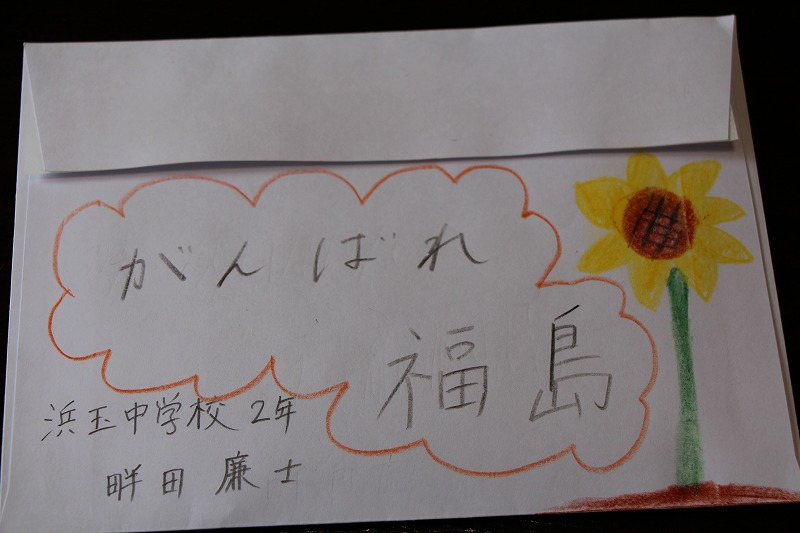 がんばれ
福島
浜玉中学校 2年
畔田 廉士